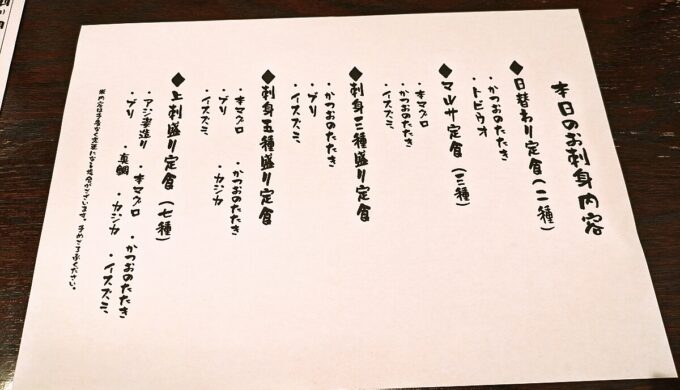 本日のお刺身内容
◆日替わり定食(二種)
・かつおのたたき
・トビウオ
◆マルサ定食(三種)
・本マグロ
・かつおのたたき
・イスズミ
◆刺身三種盛り定食
・かつおのたたき
・ブリ
・イスズミ
◆刺身五種盛り定食
・本マグロ ・かつおのたたき
・ブリ ・カジカ
・イスズミ
◆上刺盛り定食(七種)
・アジ姿造り ・本マグロ ・かつおのたたき
・ブリ ・真鯛 ・カジカ ・イスズミ
※内容は予告なく変更になる場合がございます。予めご了承ください。